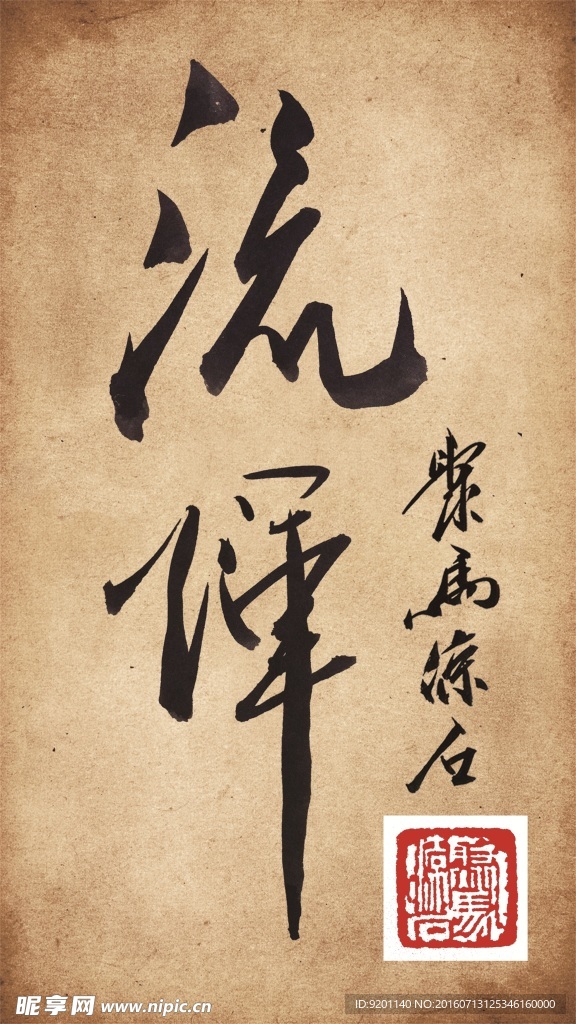 流輝
聚馬凉石
昵享网 www.nipic.cn
ID:9201140 NO:20160713125346160000